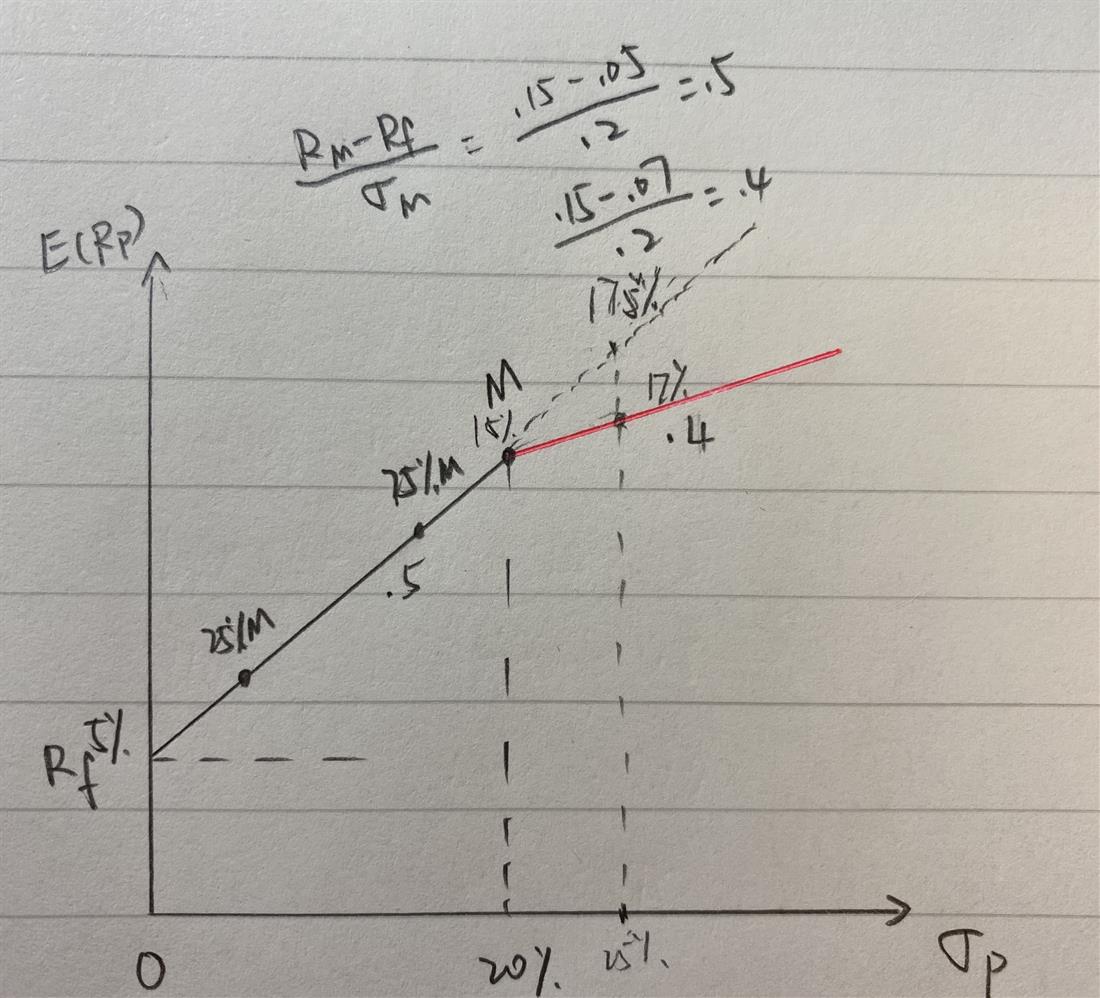 (RM-Rf)/σM = (.15-.05)/.2 = .5
(.15-.07)/.2 = .4
E(Rp)
17.5%
M
15%
17%
.4
75%M
.5
25%M
Rf 5%
0
20%
25%
σp